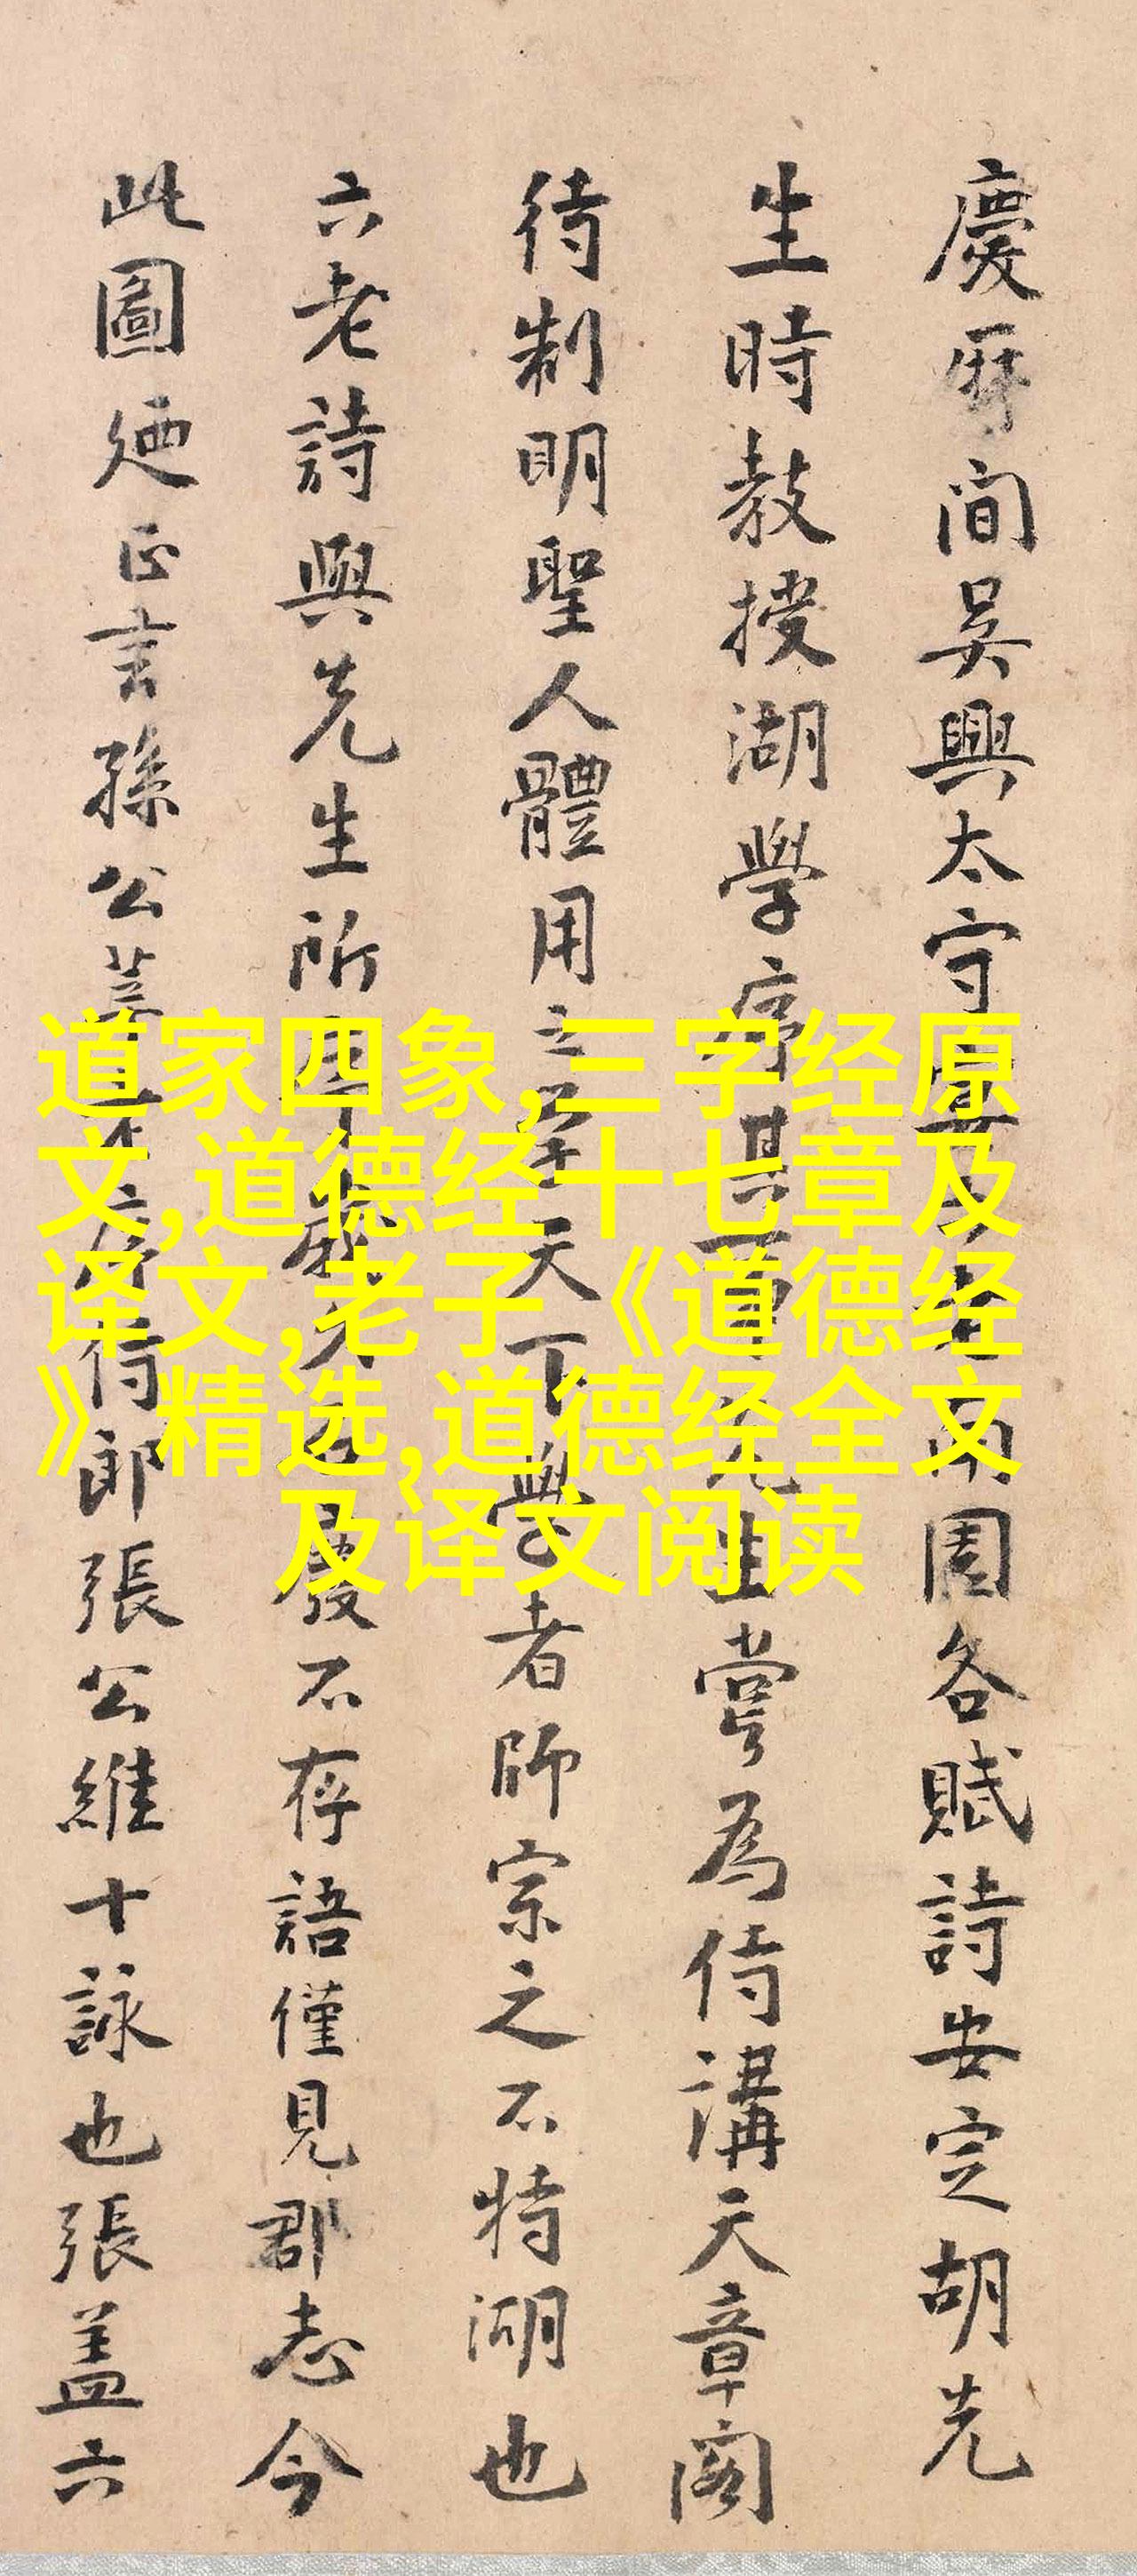 慶厤間吳興太守園各賦詩安定胡先
生時教授湖學序其首先生嘗為侍講天章閣
待制明聖人體用之學天下學者師宗之不特湖也
六老詩與先生所石廢不存語僅見郡志今
此圖廼正言孫公莘序侍郎張公維十詠也張蓋六
道家四象,三字经原
文,道德经十七章及
译文,老子《道德经
》精选,道德经全文
及译文阅读